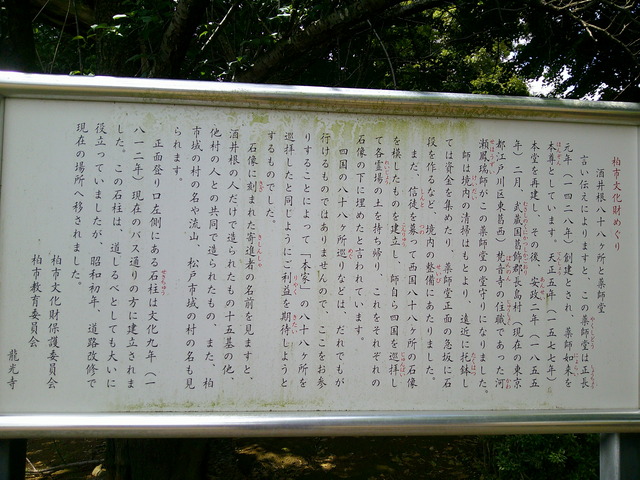 柏市文化財めぐり
酒井根八十八ヶ所と薬師堂
言い伝えによりますと、この薬師堂は正長
元年（一四二八年）創建とされ、薬師如来を
本尊としています。天正五年（一五七七年）
本堂を再建し、その後、安政二年（一八五五
年）二月、武蔵国葛飾郡長島村（現在の東京
都江戸川区東葛西）梵音寺の住職であった河
瀬鳳瑞師がこの薬師堂の堂守りになりました。
師は境内の清掃はもとより、遠近に托鉢し
ては資金を集めたり、薬師堂正面の急坂に石
段を作るなど、境内の整備にあたりました。
また、信徒を募って西国八十八ヶ所の石像
を模したものを建立し、師自ら四国を巡拝し
て各霊場の土を持ち帰り、これをそれぞれの
石像の下に埋めたと言われています。
四国の八十八ヶ所巡りなどは、だれでもが
行けるものではありませんので、ここをお参
りすることによって、「本家」の八十八ヶ所を
巡拝したと同じようにご利益を期待しようと
するものでした。
石像に刻まれた寄進者の名前を見ますと、
酒井根の人だけで造られたもの十五基の他、
他村の人との共同で造られたもの、また、柏
市域の村の名や流山、松戸市域の村の名も見
られます。
正面登り口左側にある石柱は文化九年（一
八一二年）現在のバス通りの方に建立されま
した。この石柱は、道しるべとしても大いに
役立っていましたが、昭和初年、道路改修で
現在の場所へ移されました。
柏市文化財保護委員会
柏市教育委員会
龍光寺